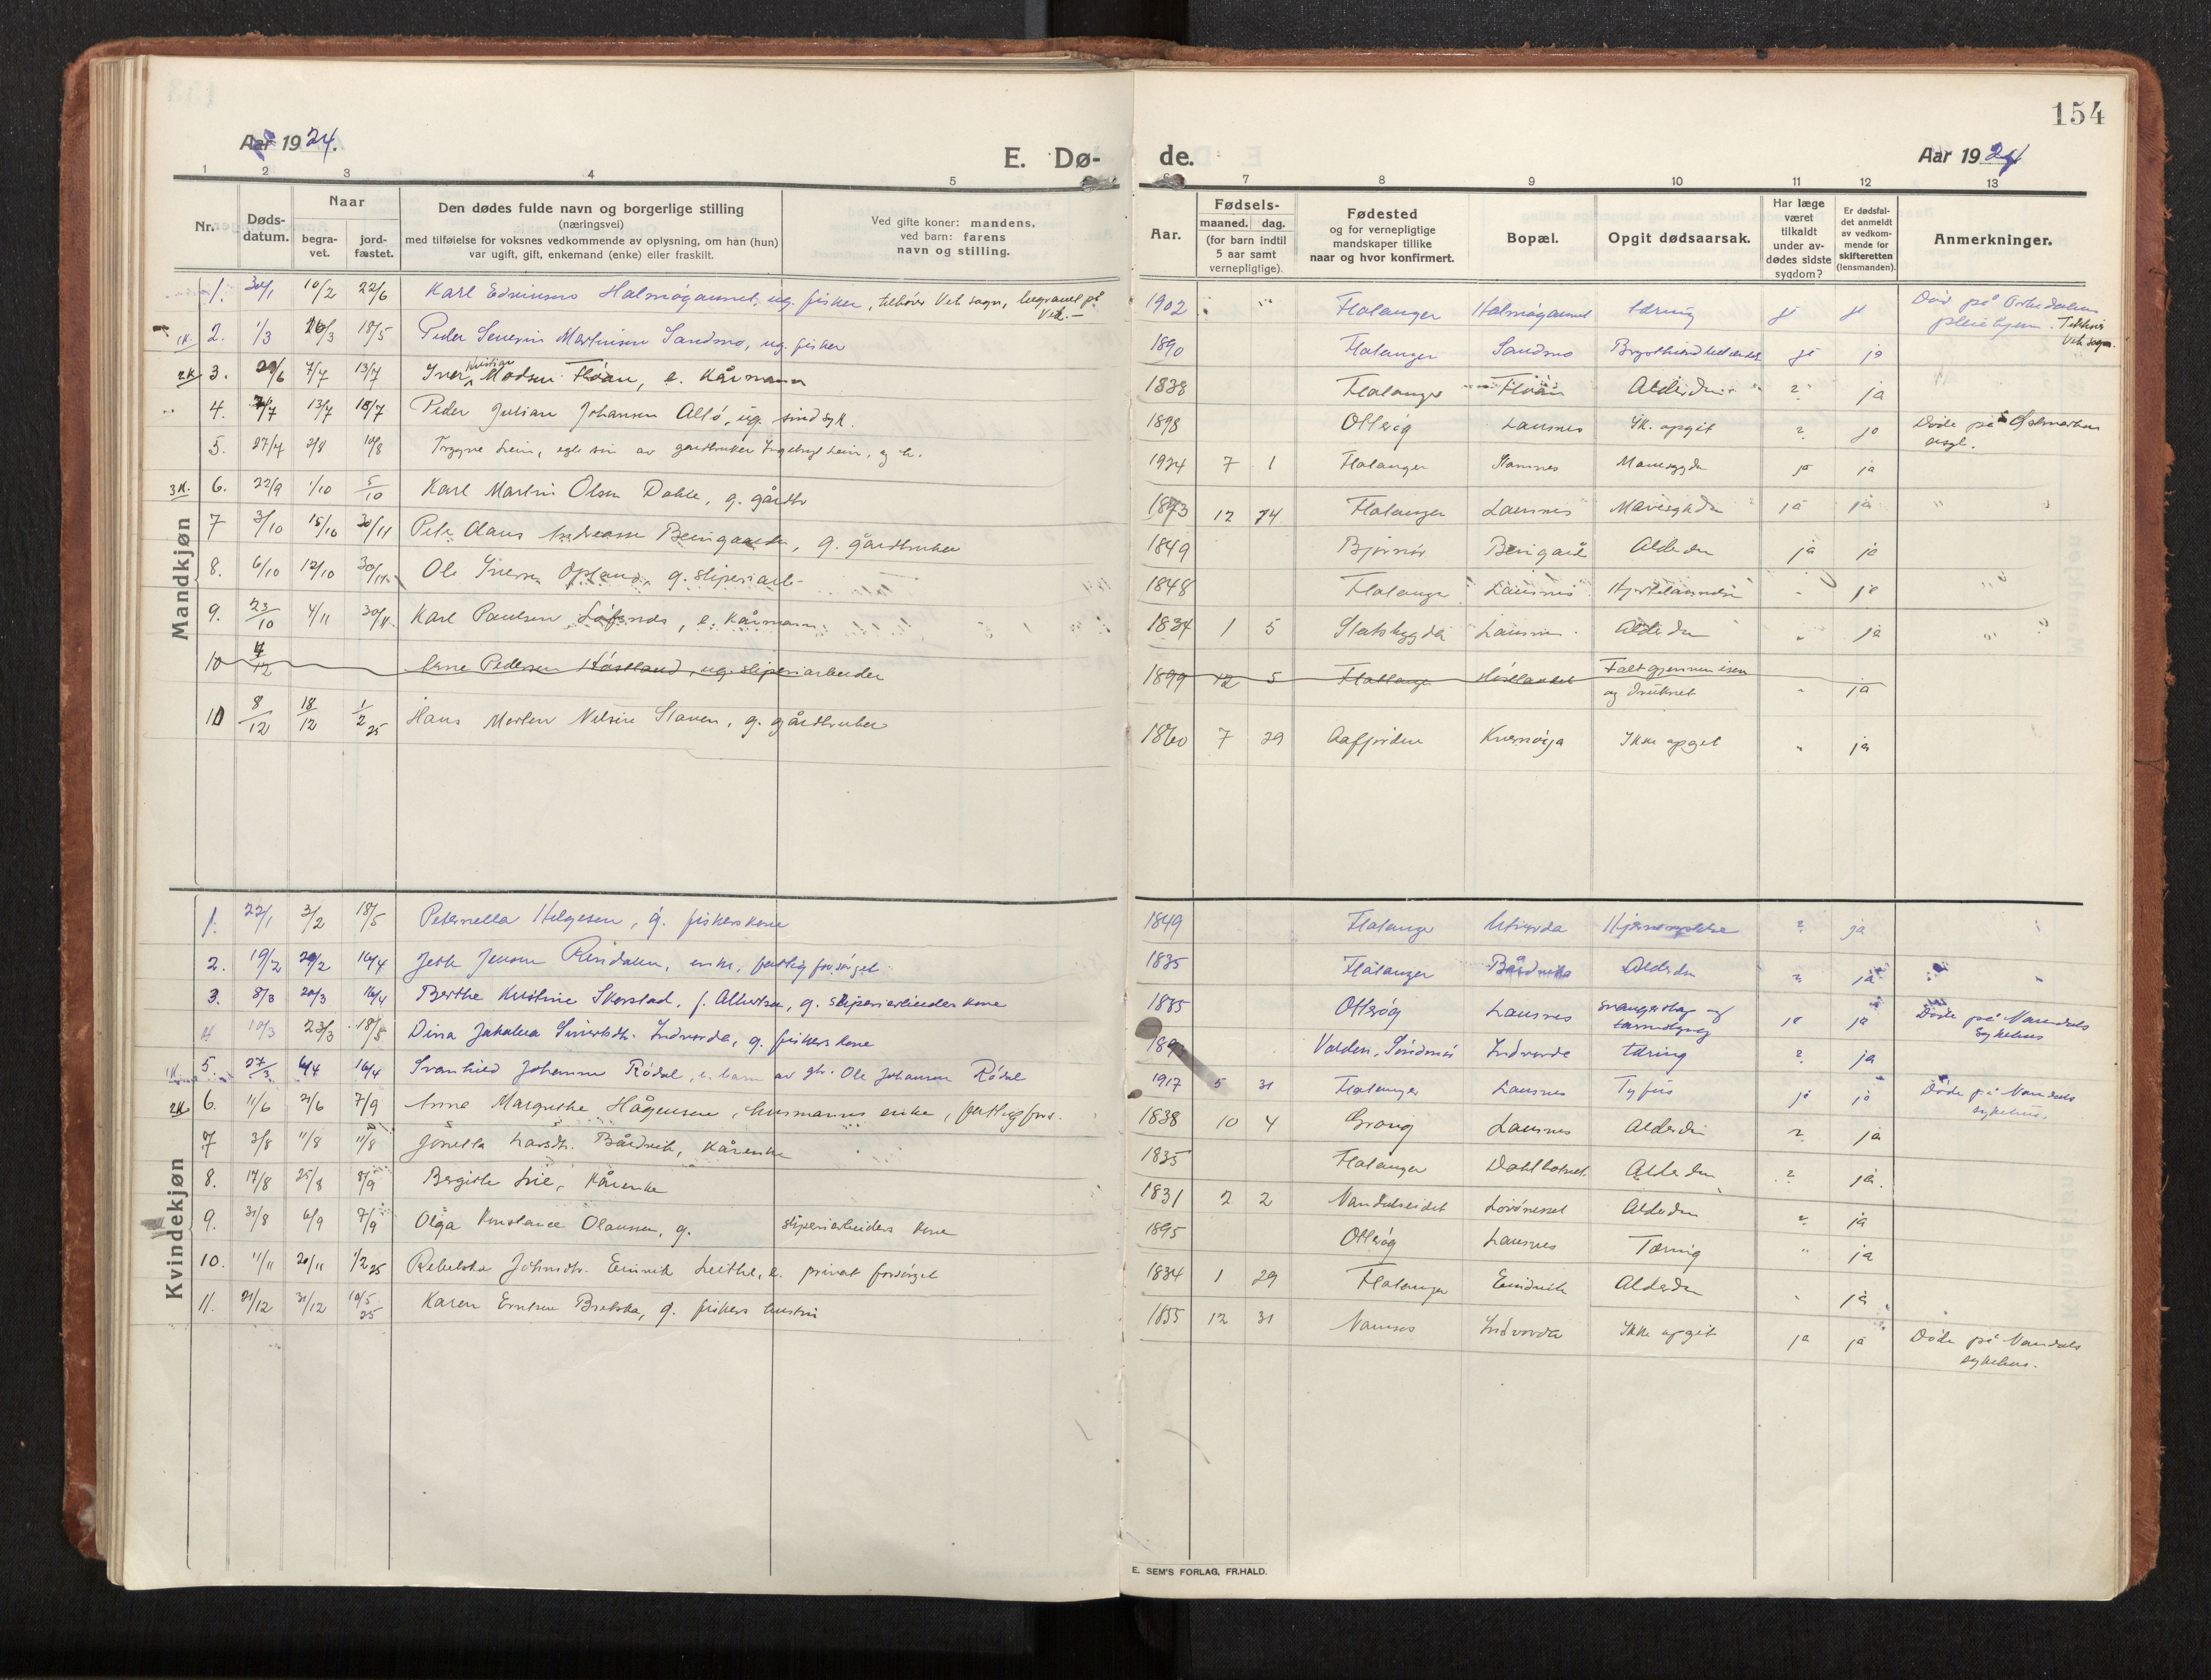 154
Aar 1924.
E. Dø-
de.
Aar 1924
1 2 3 4 5
6 7 8 9 10 11 12 13
Nr.
Døds-
datum.
Naar
begra-
vet.
jord-
fæstet.
Den dødes fulde navn og borgerlige stilling
(næringsvei)
med tilføielse for voksnes vedkommende av oplysning, om han (hun)
var ugift, gift, enkemand (enke) eller fraskilt.
Ved gifte koner: mandens,
ved barn: farens
navn og stilling.
Aar.
Fødsels-
maaned. dag.
(for barn indtil
5 aar samt
vernepligtige).
Fødested
og for vernepligtige
mandskaper tillike
naar og hvor konfirmert.
Bopæl.
Opgit dødsaarsak.
Har læge
været
tilkaldt
under av-
dødes sidste
sygdom?
Er dødsfal-
det anmeldt
av vedkom-
mende for
skifteretten
(lensmanden).
Anmerkninger.
Mandkjøn
1. 30/1 10/2 22/6 Karl Edvinsen Halmøgaunet, ug. fisker, tilhører Vik sogn, begravet på
Vik.
1902 Flatanger Halmøgaunet tæring ja ja Død på Orkedalens
pleiehjem. Tilhører
Vik sogn.
1K. 2. 1/3 16/3 18/5 Peder Severin Martinsen Sandmo, ug. fisker
1890 Flatanger Sandmo ja ja
2K 3. 29/6 7/7 13/7 Iver Kristian Madsen Fløan, e. kårmann
1838 Flatanger Fløan Alderdom ? ja
4. 7/7 13/7 18/7 Peder Julian Johansen Altø, ug. sindsyk.
1898 Otterøy Lausnes Ik. opgit ? ja Døde på
asyl.
5. 27/7 2/8 10/8 Trygve Lein, egte søn av gaardbruker Ingebrigt Lein, og h.
1924 7 1 Flatanger Mavesygdom ja ja
3K. 6. 22/9 1/10 5/10 Karl Martin Olsen Dahle, g. gårdbr
1873 12 24 Flatanger Lausnes Mavesygdom ja ja
7 3/10 15/10 30/11 Peter Claus Andreassen Beingaard, g. gårdbruker
1849 Bjørnør Beingaard Alderdom ja ja
8. 6/10 12/10 30/11 Ole Iversen Opland, g. sliperiarb-
1848 Flatanger Lausnes " ja
9. 23/10 4/11 30/11 Karl Paulsen Løfsnes, e. kårmann
1834 1 5 Statsbygda Lausnes Alderdom " ja
10 4/12 Arne Pedersen Høstland, ug. sliperiarbeider
1899 12 5 Flatanger Høstlandet Falt gjennem isen
og druknet " ja
11 8/12 18/12 1/2 25 Hans Morten Nilsen Staven, g. gårdbruker
1860 7 29 Aafjorden Kvernøya Ikke opgit " ja
Kvindekjøn
1. 22/1 3/2 18/5 Peternella Helgesen, g. fiskerskone
1849 Flatanger Utvorda ? ja
2. 19/2 29/2 16/4 Jensen Rindalen, enke, fattig forsørget
1835 Flatanger Bårdvik Alderdom ? ja
3. 8/3 20/3 16/4 Berthe Kristine Skorstad, f. Albertsen, g. sliperiarbeiderskone
1885 Otterøy Lausnes svangerskap og
ja ja Døde på Namdals
sykehus
4 10/3 23/3 18/5 Dina Jakobea Sivertsdtr. Indvorda, g. fiskers kone
Indvorda tæring ? ja
1K. 5. 27/3 6/4 16/4 Svanhild Johanne Rødal, e. barn av gbr. Ole Johansen Rødal
1917 5 31 Flatanger Lausnes Tyfus ja ja Døde på Namdals
sykehus.
2K 6. 11/6 21/6 7/9 Anna Margrethe Hågensen, husmanns enke, fattig fors.
1838 10 4 Grong Lausnes Alderdom ? ja
7 3/8 11/8 11/8 Jonetta Larsdtr. Bårdvik, kårenke
1835 Flatanger Alderdom ? ja.
8. 17/8 25/8 8/9 Bergitte Lie, kårenke
1831 2 2 Namdalseidet Alderdom ? ja
9. 31/8 6/9 7/9 Olga Konstance Olaussen, g. sliperiarbeiders kone
1895 Otterøy Lausnes Tæring " ja
10. 11/11 20/11 1/2 25 Rebekka Johnsdtr. Leithe, e. privat forsørget
1834 1 29 Flatanger Alderdom " ja
11. 21/12 31/12 10/5 25 Karen Erntsen Brekka, g. fiskers hustru
1855 12 31 Namsos Indvorda Ikke opgit ja ja Døde på Namdals
sykehus.
E. SEM'S FORLAG, FR.HALD.